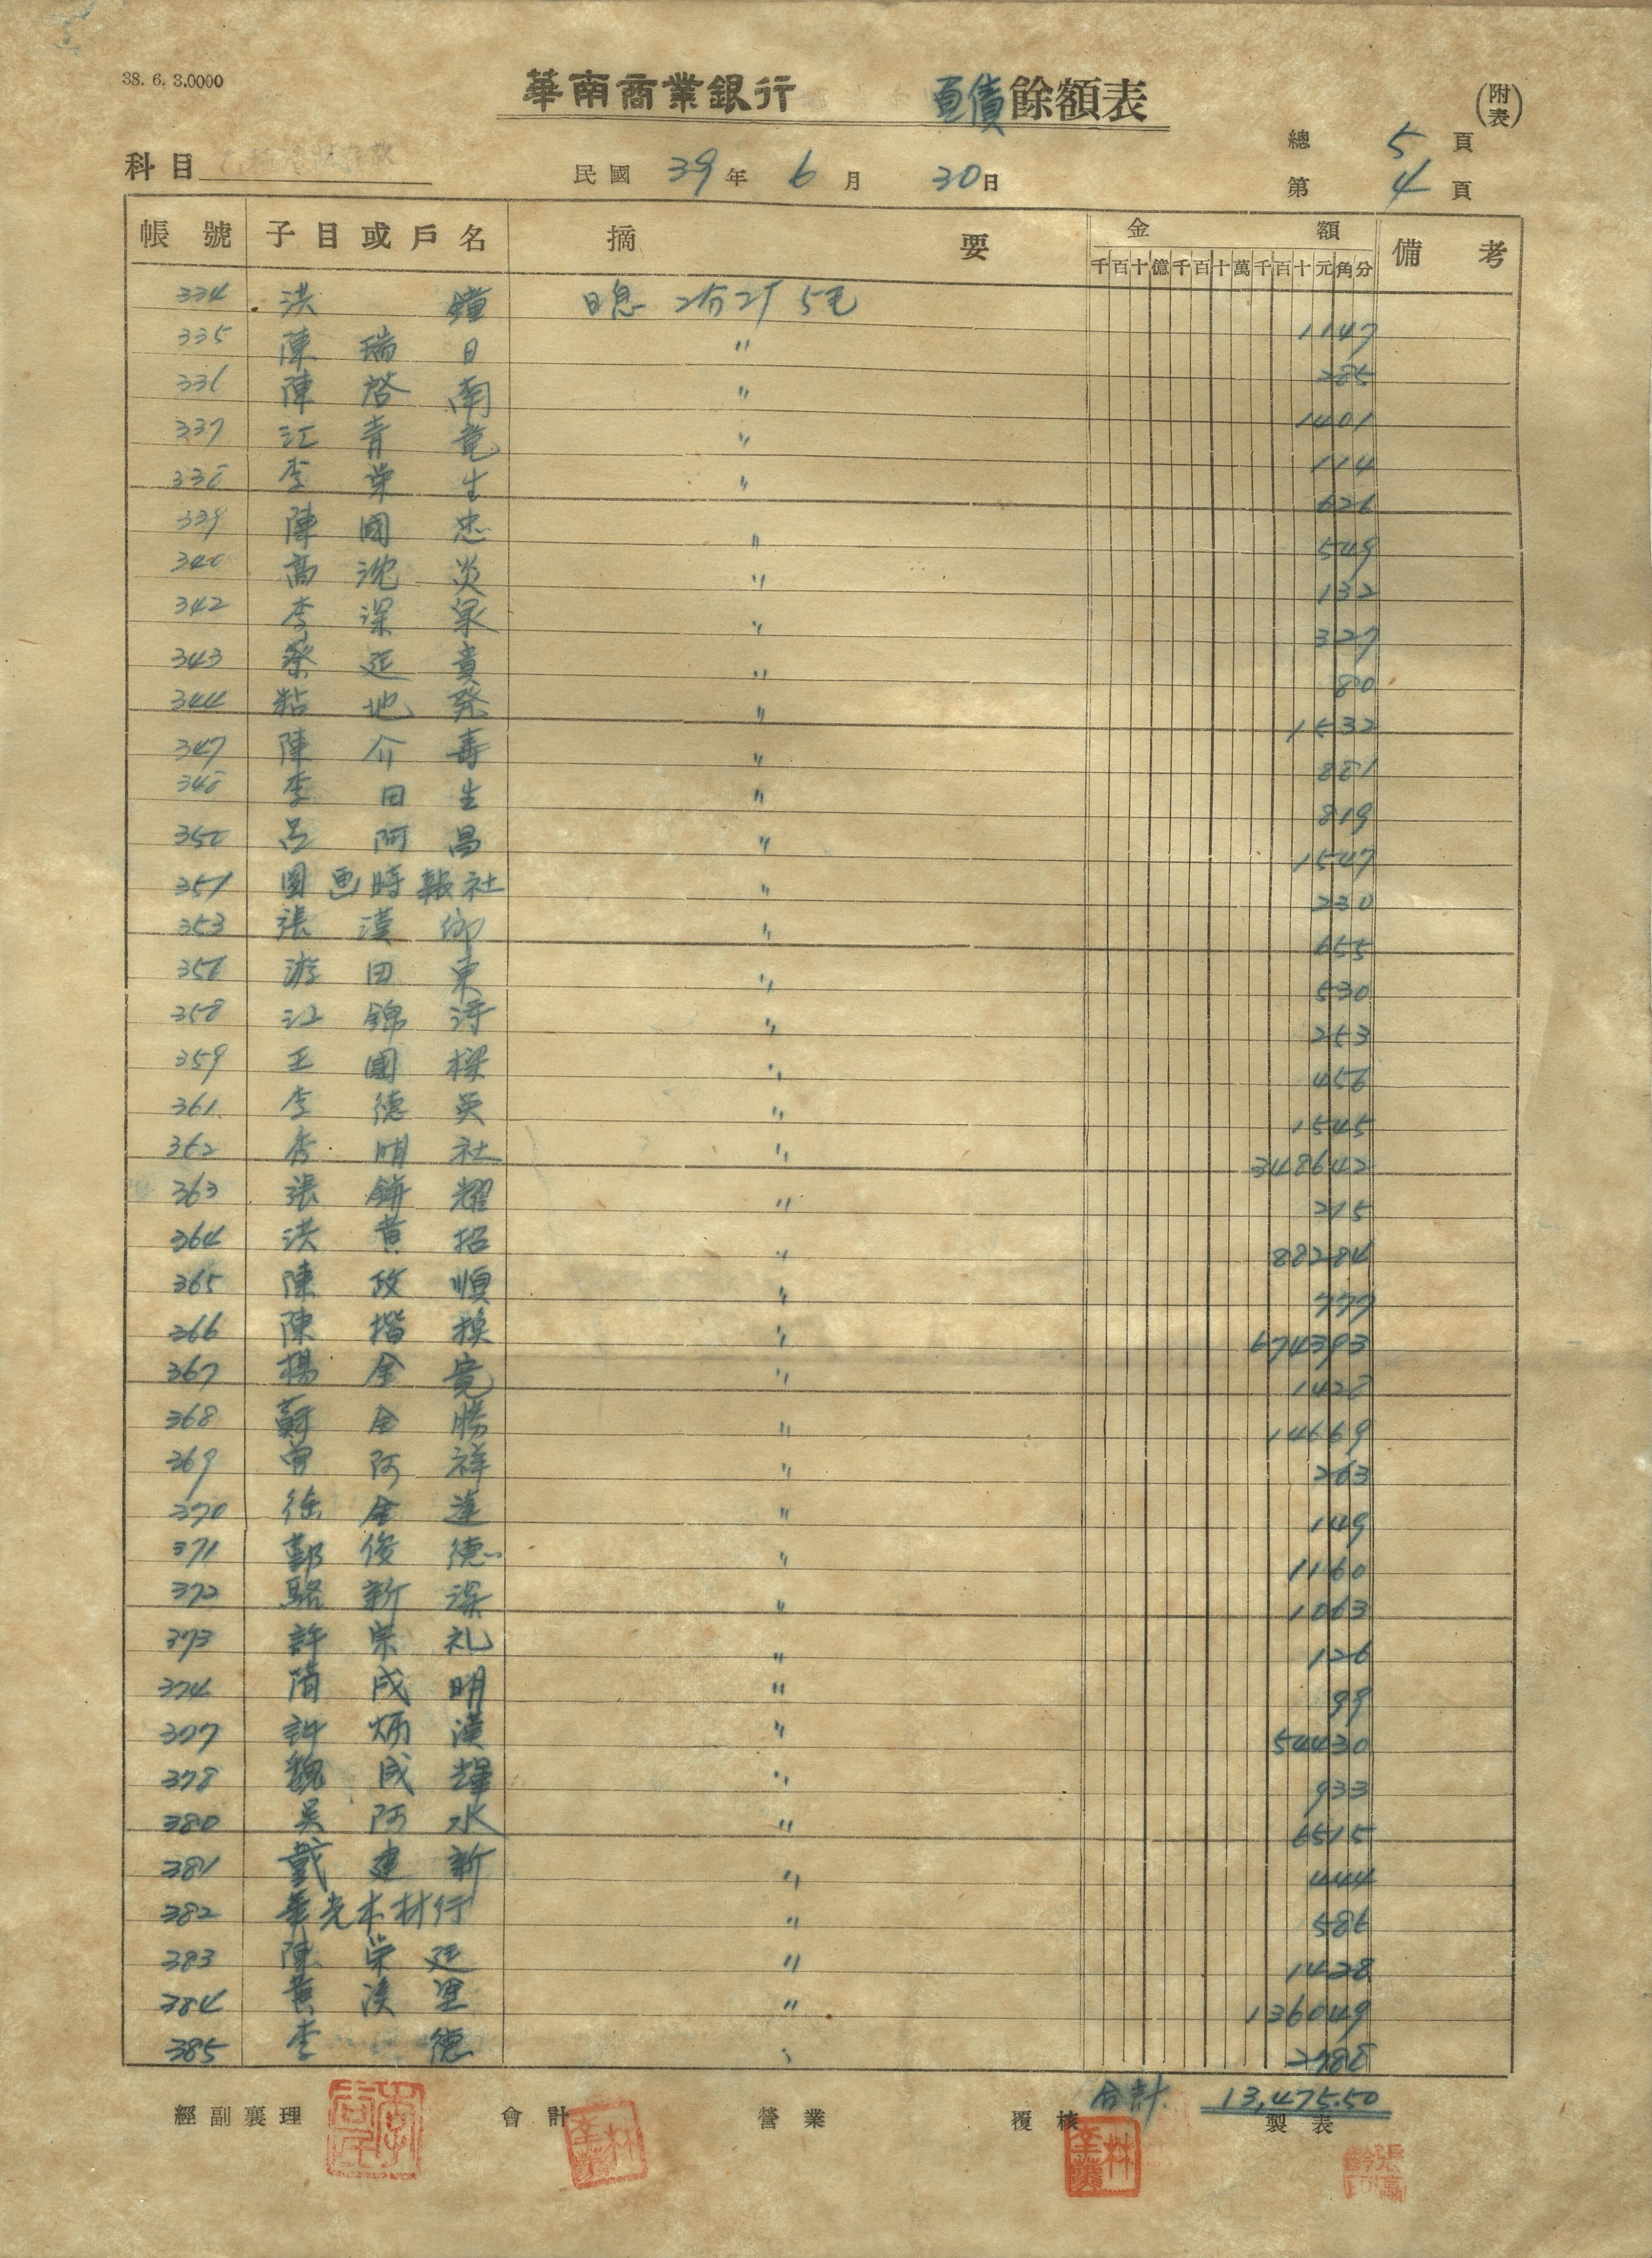 38. 6. 3.0000
華南商業銀行 負債餘額表 (附表)
總 5 頁
科目 民國 39 年 6 月 30 日 第 4 頁
帳號 子目或戶名 摘要 金額 備考
千百十億千百十萬千百十元角分
334 洪 鐘 日息 2分2厘5毛 1147
335 陳瑞日 〃 285
336 陳啓南 〃 1401
337 江青竜 〃 114
338 李荣生 〃 626
339 陳國忠 〃 549
340 高沈炎 〃 132
342 李深泉 〃 327
343 蔡延貴 〃 80
344 粘地発 〃 1532
347 陳介壽 〃 881
348 李田生 〃 819
350 呂阿昌 〃 1547
351 圖画時報社 〃 230
353 張漢卿 〃 655
356 游田東 〃 530
358 江錦 〃 253
359 王國樑 〃 456
361 李德英 〃 1545
362 明社 〃 348642
363 張餅耀 〃 215
364 洪黄招 〃 88284
365 陳政順 〃 777
366 陳換 〃 674393
367 楊金寛 〃 1428
368 蘇金勝 〃 14669
369 曾阿祥 〃 263
370 徐金蓮 〃 149
371 鄞俊德 〃 1160
372 駱新深 〃 1063
373 許宗礼 〃 126
374 簡成明 〃 99
377 許炳漢 〃 54430
378 魏成輝 〃 933
380 吳阿水 〃 6515
381 戴建新 〃 444
382 華光木材行 〃 586
383 陳荣廷 〃 1428
384 黄漢 〃 136049
385 李 德 〃 2788
合計 13,475.50
經副襄理 會計 營業 覆核 製表